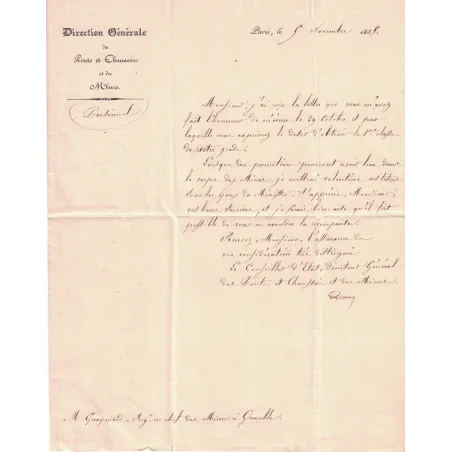 Direction Générale
des
Ponts et Chaussées
et des
Mines.
Personnel
Paris, le 5 Novembre 183
Monsieur, j'ai reçu la lettre que vous m'avez
fait l'honneur de m'écrire le 29 Octobre et par
laquelle vous exprimez le désir d'obtenir la 1ère classe
de votre grade.
Lorsque des promotions pourront avoir lieu dans
le corps des Mines, je mettrai volontiers vos titres
sous les yeux du Ministre. J'apprécie, Monsieur,
vos bons services, et je ferai tout ce qu'il sera
possible de vous en la récompense.
Recevez, Monsieur, l'assurance de
ma considération très distinguée
Le Conseiller d'Etat, Directeur Général
des Ponts et Chaussées et des Mines
M. Gueymard, Ingr. en chef des Mines à Grenoble.